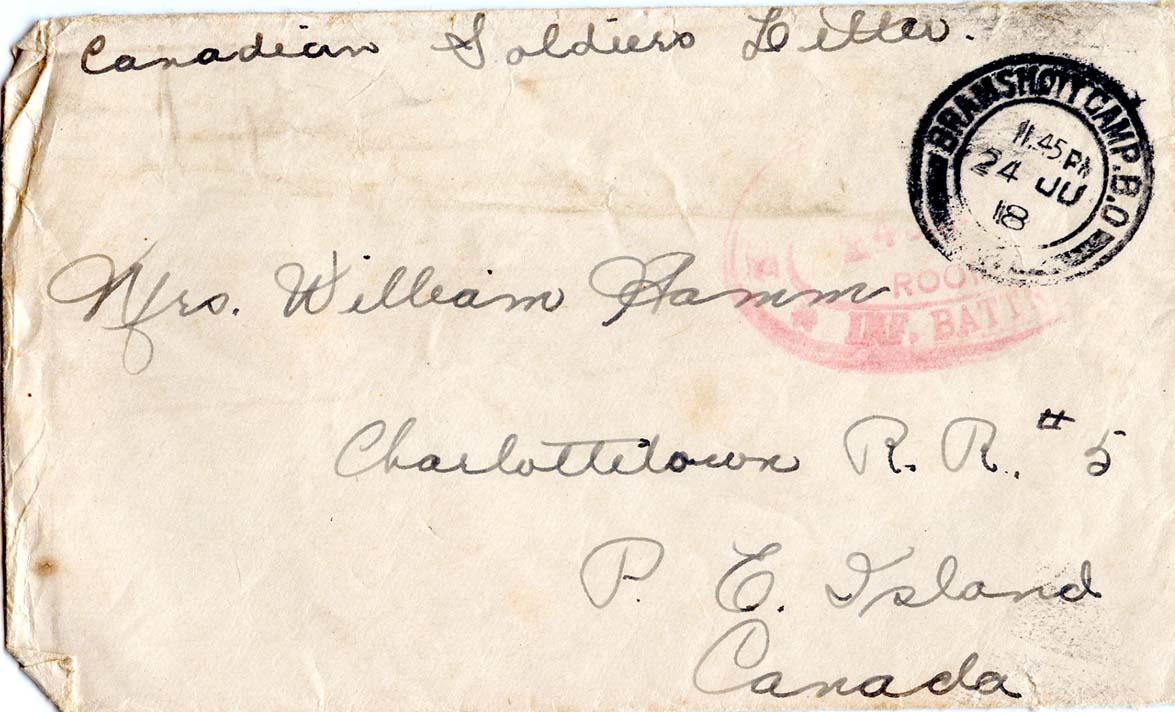 Canadian Soldiers Letter.
BRAMSHOTT CAMP. B.O
11.45 PM
24 JU
18
Mrs. William Hamm
ROOM
INF. BATT
Charlottetown R. R. # 5
P. E. Island
Canada